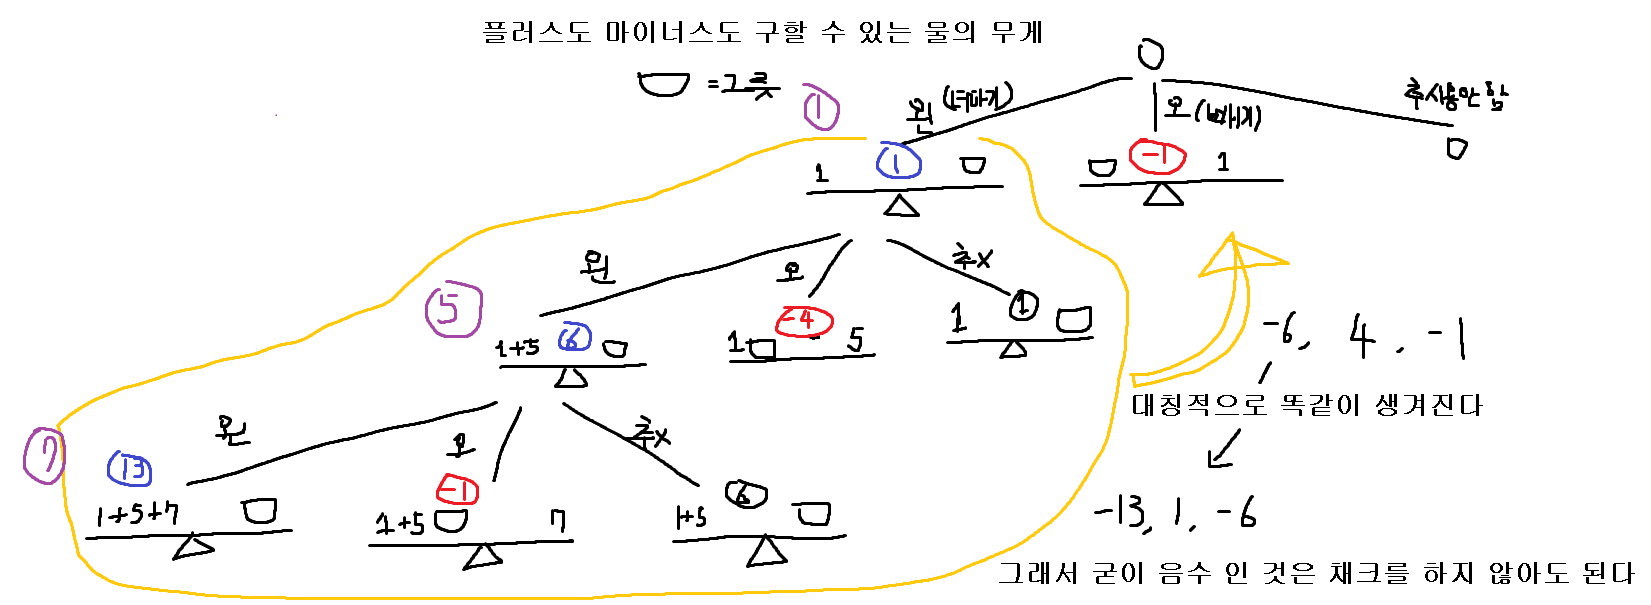 플러스도 마이너스도 구할 수 있는 물의 무게
=그릇
1
왼 (더하기)
오 (빼기)
추 사용 안 함
1 1
-1 1
왼
오
추X
5
1+5 6
-4
1 5
1 1
-6, 4, -1
대칭적으로 똑같이 생겨진다
7
왼
오
추X
13
1+5+7
-1
1+5 7
6
1+5
-13, 1, -6
그래서 굳이 음수 인 것은 채크를 하지 않아도 된다